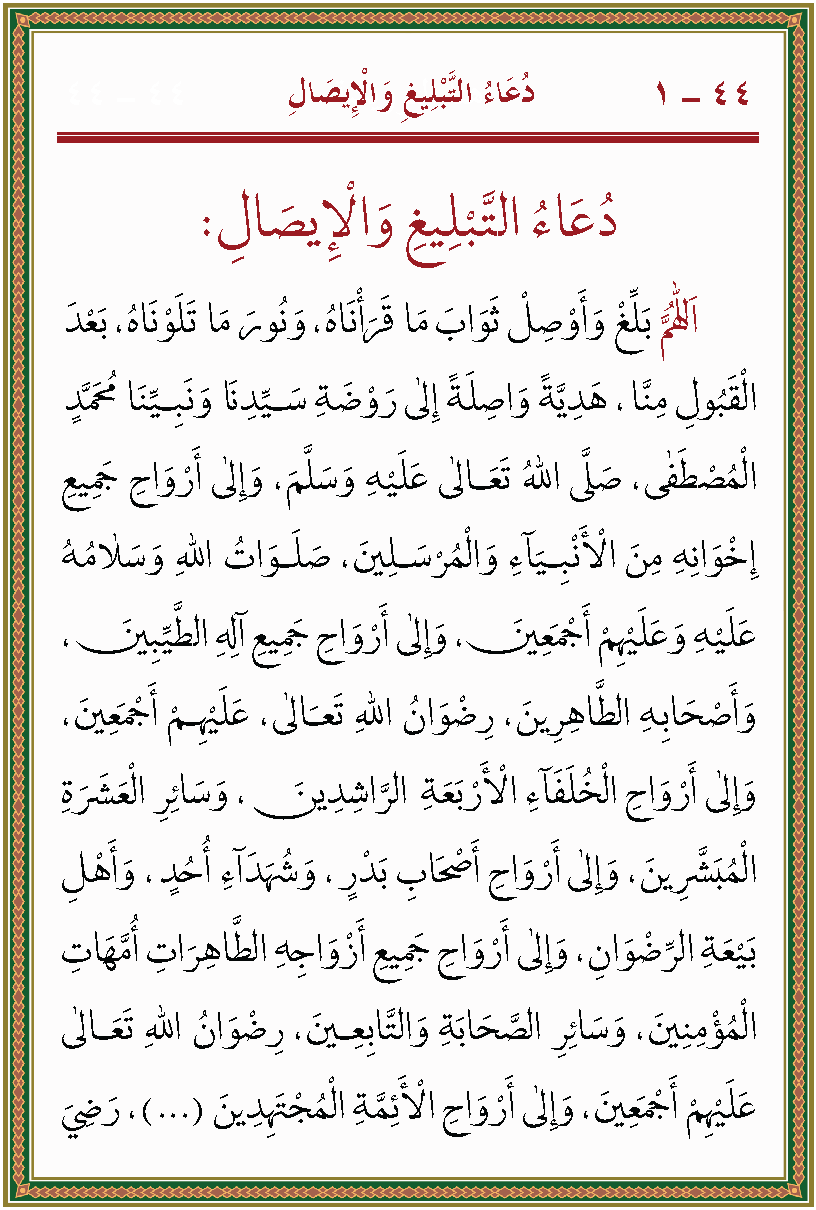 ٤٤ – ١ دُعَاءُ التَّبْلِيغِ وَالْإِيصَالِ ٤٤ – ٤٤
دُعَاءُ التَّبْلِيغِ وَالْإِيصَالِ:
اَللّٰهُمَّ بَلِّغْ وَأَوْصِلْ ثَوَابَ مَا قَرَأْنَاهُ، وَنُورَ مَا تَلَوْنَاهُ، بَعْدَ
الْقَبُولِ مِنَّا ، هَدِيَّةً وَاصِلَةً إِلٰى رَوْضَةِ سَيِّدِنَا وَنَبِيِّنَا مُحَمَّدٍ
الْمُصْطَفٰى، صَلَّى اللهُ تَعَالٰى عَلَيْهِ وَسَلَّمَ، وَإِلٰى أَرْوَاحِ جَمِيعِ
إِخْوَانِهِ مِنَ الْأَنْبِيَآءِ وَالْمُرْسَلِينَ، صَلَوَاتُ اللهِ وَسَلَامُهُ
عَلَيْهِ وَعَلَيْهِمْ أَجْمَعِينَ، وَإِلٰى أَرْوَاحِ جَمِيعِ آلِهِ الطَّيِّبِينَ ،
وَأَصْحَابِهِ الطَّاهِرِينَ، رِضْوَانُ اللهِ تَعَالٰى، عَلَيْهِمْ أَجْمَعِينَ،
وَإِلٰى أَرْوَاحِ الْخُلَفَآءِ الْأَرْبَعَةِ الرَّاشِدِينَ ، وَسَائِرِ الْعَشَرَةِ
الْمُبَشَّرِينَ، وَإِلٰى أَرْوَاحِ أَصْحَابِ بَدْرٍ ، وَشُهَدَآءِ أُحُدٍ ، وَأَهْلِ
بَيْعَةِ الرِّضْوَانِ، وَإِلٰى أَرْوَاحِ جَمِيعِ أَزْوَاجِهِ الطَّاهِرَاتِ أُمَّهَاتِ
الْمُؤْمِنِينَ، وَسَائِرِ الصَّحَابَةِ وَالتَّابِعِينَ، رِضْوَانُ اللهِ تَعَالٰى
عَلَيْهِمْ أَجْمَعِينَ، وَإِلٰى أَرْوَاحِ الْأَئِمَّةِ الْمُجْتَهِدِينَ (...)، رَضِيَ